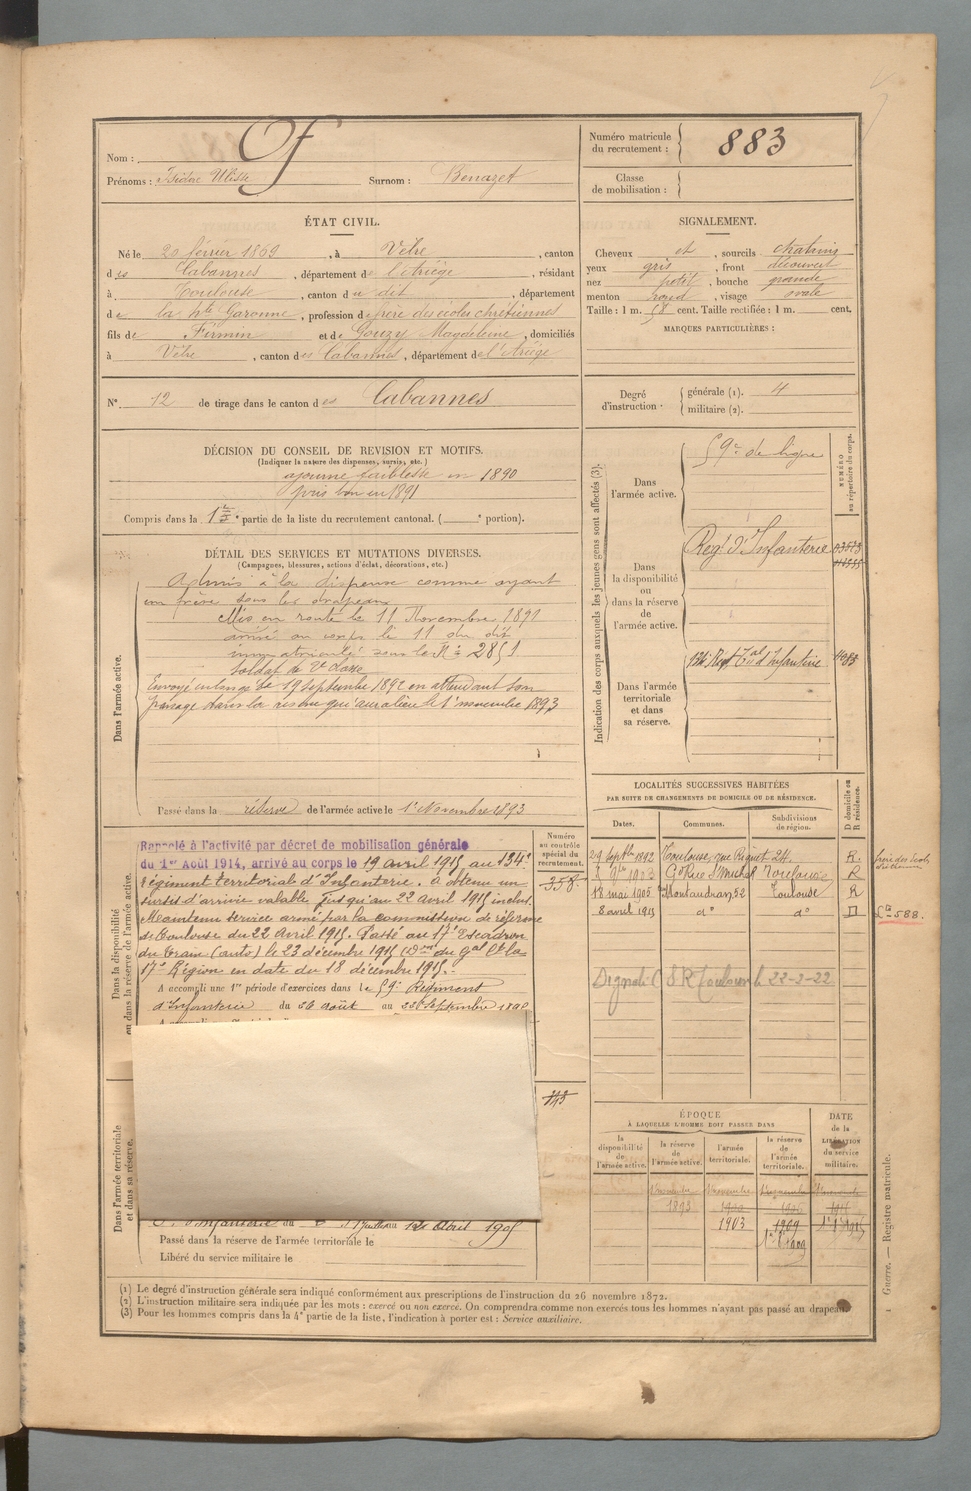 Nom : Of
Prénoms : Isidore Ulisse Surnom : Benazet
Numéro matricule du recrutement : 883
Classe de mobilisation :
ÉTAT CIVIL.
Né le 20 février 1869, à Vèbre, canton
des Cabannes, département de l'Ariège, résidant
à Toulouse, canton du dit, département
de la Hte Garonne, profession de frère des écoles chrétiennes
fils de Firmin et de Gouzy Magdeleine, domiciliés
à Vèbre, canton des Cabannes, département de l'Ariège
SIGNALEMENT.
Cheveux et, sourcils chatains
yeux gris, front découvert
nez petit, bouche grande
menton rond, visage ovale
Taille : 1 m. 58 cent. Taille rectifiée : 1 m. cent.
MARQUES PARTICULIÈRES :
N° 12 de tirage dans le canton des Cabannes
Degré d'instruction : générale (1). 4
militaire (2).
DÉCISION DU CONSEIL DE REVISION ET MOTIFS.
(Indiquer la nature des dispenses, sursis, etc.)
ajourné faiblesse en 1890
pris bon en 1891
Compris dans la 1re partie de la liste du recrutement cantonal. ( portion).
DÉTAIL DES SERVICES ET MUTATIONS DIVERSES.
(Campagnes, blessures, actions d'éclat, décorations, etc.)
Dans l'armée active.
Admis à la dispense comme ayant
un frère sous les drapeaux
Mis en route le 11 Novembre 1891
arrivé au corps le 11 du dit
immatriculé sous le N° 2851
soldat de 2e classe
Envoyé en congé le 19 septembre 1892 en attendant son
passage dans la réserve qui aura lieu le 1er novembre 1893
Passé dans la réserve de l'armée active le 1er Novembre 1893
Indication des corps auxquels les jeunes gens sont affectés (3).
NUMÉRO au répertoire du corps.
Dans l'armée active.
59e de ligne
Dans la disponibilité ou dans la réserve de l'armée active.
Regt d'Infanterie
Dans l'armée territoriale et dans sa réserve.
134e Regt Tal d'Infanterie
Dans la disponibilité ou dans la réserve de l'armée active.
Numéro au contrôle spécial du recrutement.
358
Rappelé à l'activité par décret de mobilisation générale
du 1er Août 1914, arrivé au corps le 19 avril 1915 au 134e
régiment territorial d'Infanterie. a obtenu un
sursis d'arrivée valable jusqu'au 22 avril 1915 inclus.
Maintenu service armé par la commission de réforme
de Toulouse du 22 avril 1915. Passé au 17e Escadron
du train (auto) le 23 décembre 1915 (Don du Gal Ct la
17e Région en date du 18 décembre 1915.
A accompli une 1re période d'exercices dans le 59e Régiment
d'Infanterie du 30 août au septembre
143
d'Infanterie du au Avril 1905
Dans l'armée territoriale et dans sa réserve.
Passé dans la réserve de l'armée territoriale le
Libéré du service militaire le
LOCALITÉS SUCCESSIVES HABITÉES
PAR SUITE DE CHANGEMENTS DE DOMICILE OU DE RÉSIDENCE.
Dates. Communes. Subdivisions de région. D domicile ou R résidence.
29 Septbre 1892 Toulouse, rue Riquet 24. R.
9bre 1903 Gde Rue St Michel Toulouse R
18 mai 1905 Montaudran, 52 Toulouse R
8 avril 1915 do do D
588.
Signalé C S R Toulouse le 22-2-22
ÉPOQUE
À LAQUELLE L'HOMME DOIT PASSER DANS
la disponibilité de l'armée active. la réserve de l'armée active. l'armée territoriale. la réserve de l'armée territoriale.
DATE de la LIBÉRATION du service militaire.
1893
1903 1909
Guerre. — Registre matricule.
(1) Le degré d'instruction générale sera indiqué conformément aux prescriptions de l'instruction du 26 novembre 1872.
(2) L'instruction militaire sera indiquée par les mots : exercé ou non exercé. On comprendra comme non exercés tous les hommes n'ayant pas passé au drapeau.
(3) Pour les hommes compris dans la 4e partie de la liste, l'indication à porter est : Service auxiliaire.